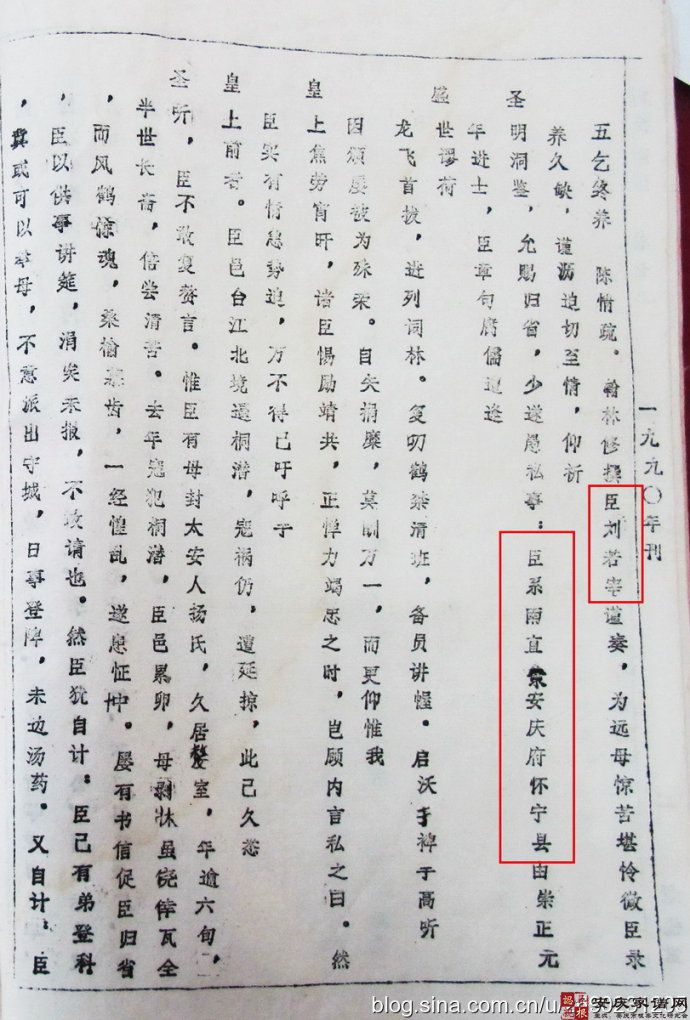 一九九〇年刊
五乞终养 陈情疏。翰林修撰臣刘若宰谨奏，为远母惊苦堪怜微臣录
养久缺，谨沥迫切至情，仰祈
圣明洞鉴，允赐归省，少遂愚私事：臣系南直隶安庆府怀宁县由崇正元
年进士，臣章句腐儒迫逢
盛世谬荷
龙飞首拔，进列词林。复叨鹤禁清班，备员讲幄。启沃于裨于高听
因颁屡被为殊荣。自矢捐糜，莫酬万一，而更仰惟我
皇上焦劳宵旰，诰臣惕励靖共，正悼力竭忠之时，岂顾内言私之日。然
臣实有情悲势迫，万不得已吁呼于
皇上前者。臣邑台江北境遥桐潜，寇祸仍，遭延掠，此已久悉
圣听，臣不敢复赘言。惟臣有母封太安人扬氏，久居嫠室，年逾六旬，
半世长斋，倍尝清苦。去年寇犯桐潜，臣邑累卵，母剥牀虽侥倖瓦全
，而风鹤惊魂，桑榆暮齿，一经惶乱，遂患怔忡。屡有书信促臣归省
，臣以供事讲筵，涓埃未报，不敢请也。然臣犹自计：臣已有弟登科
，冀或可以奉母，不意派出守城，日事登陴，未边汤药。又自计：臣
blog.sina.com.cn/u/
安庆家谱网